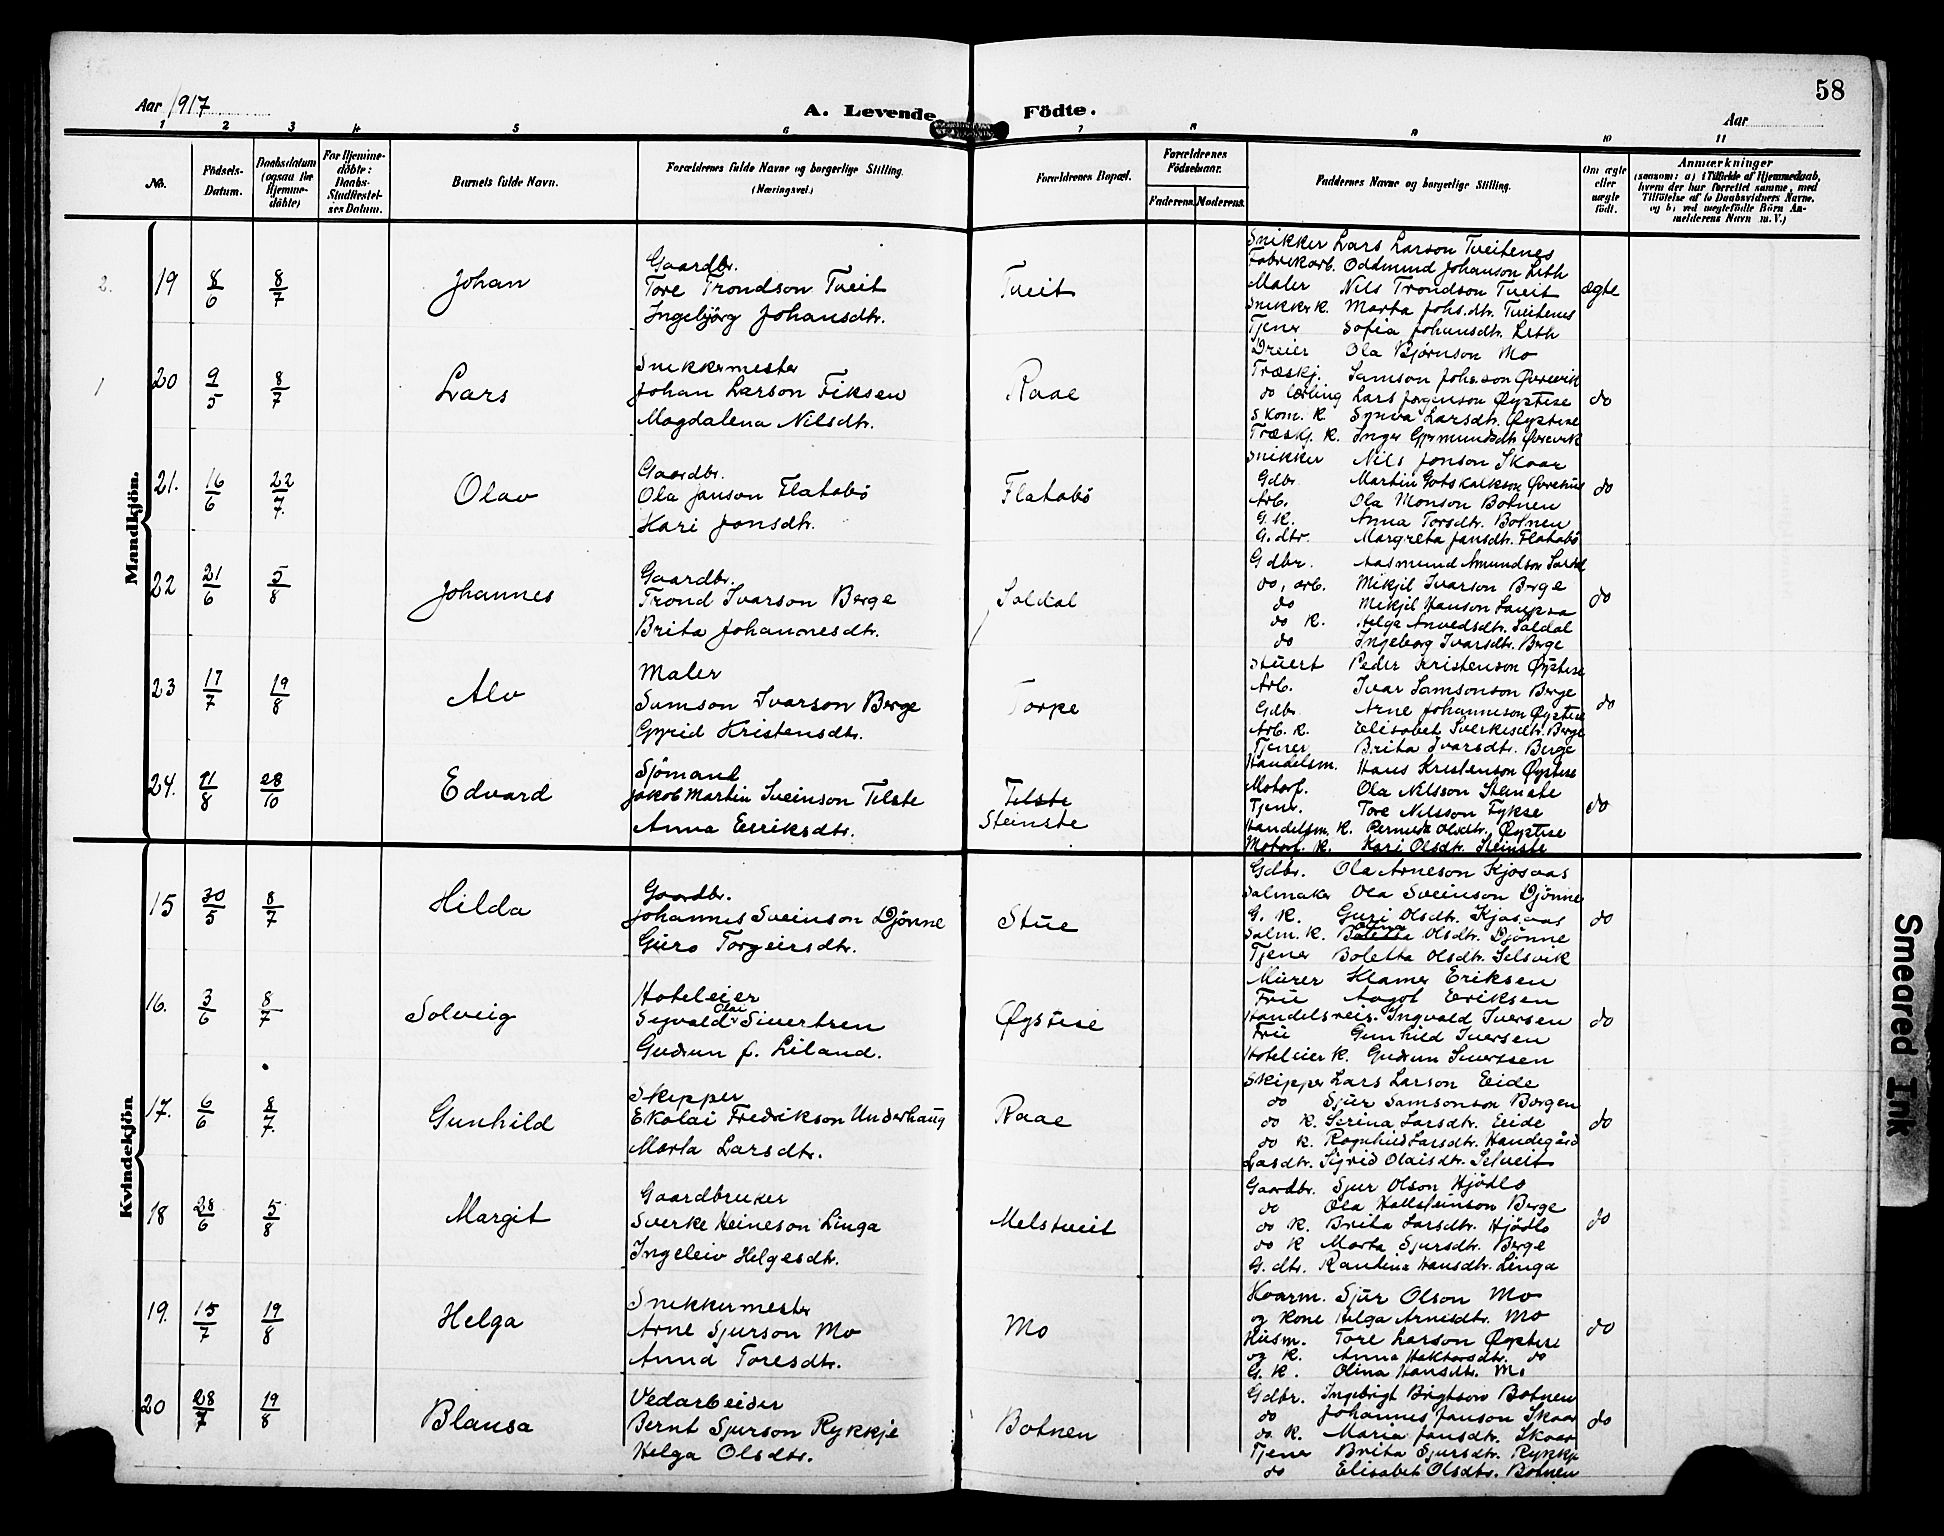 58
Aar 1917
A. Levende Födte.
Aar
1 2 3 4 5 6 7 8 9 10 11
No.
Födsels-Datum.
Daabsdatum (ogsaa for Hjemme-döbte)
For Hjemme-döbte: Daabs-Stadfæstel-ses Datum.
Barnets fulde Navn.
Forældrenes fulde Navne og borgerlige Stilling. (Næringsvei.)
Forældrenes Bopæl.
Forældrenes Födselsaar.
Faderens. Moderens.
Faddernes Navne og borgerlige Stilling.
Om ægte eller uægte født.
Anmærkninger
(saasom: a) i Tilfælde af Hjemmedaab, hvem der har forrettet samme, med Tilföielse af to Daabsvidners Navne. og b) ved uægtefödte Börn An-melderens Navn m. V.)
Mandkjön.
2. 19 8/6 8/7 Johan
Gaardbr.
Tore Trondson Tveit
Ingebjörg Johansdtr.
Tveit
Snikker Lars Larson Tveitenes
Fabrikarb. Oddmund Johanson Leth
Maler Nils Trondson Tveit
Snikker k. Marta Johs.dtr. Tveitenes
Tjener Sofia Johansdtr. Leth
ægte
1 20 9/5 8/7 Lars
Snikkermester
Johan Larson Fiksen
Magdalena Nilsdtr.
Raae
Dreier Ola Bjørnson Mo
Træskj. Samson Johsson Øvrevik
do lærling Lars Jørgenson Øystese
Skom. k. Synva Larsdtr. Øystese
Træskj. k. Inger Gjermundsdtr. Øvrevik
do
21. 16/6 22/7. Olav
Gaardbr.
Ola Janson Flatabö
Kari Jonsdtr.
Flatabö
Snikker Nils Jonson Skaar
Gdbr. Martin Gotskalkson
Arb. Ola Monson Botnen
G. K. Anna Torsdtr. Botnen
G. dtr. Margreta Jansdtr. Flatabö
do
22 21/6 5/8 Johannes
Gaardbr.
Trond Ivarson Berge
Brita Johannesdtr.
Soldal
Gdbr. Aasmund Amundson
do, arb. Mikjil Ivarson Berge
do Mikjil Hanson
do K. Helga Anvedsdtr. Soldal
do Ingeborg Ivarsdtr. Berge
do
23 17/7 19/8 Alv
Maler
Samson Ivarson Berge
Gyrid Kristensdtr.
Torpe
Stuert Peder Kristenson Øystese
Arb. Ivar Samsonson Berge
Gdbr. Arne Johanneson Øystese
Arb. k. Elisabet Sverkesdtr. Berge
Tjener Brita Ivarsdtr. Berge
do
24. 11/8 28/10 Edvard
Sjömand
Jakob Martin Sveinson Telste
Anna Eeriksdtr.
Telste
Steinste
Handelsm. Hans Kristenson Øystese
Motorf. Ola Nilsson Steinste
Tjener. Tore Nilsson Fykse
Handelsm. K. Pernick Olsdtr. Øystese
Motorf. k. Kari Olsdtr. Steinste
do
Kvindekjön
15 30/5 8/7 Hilda
Gaardbr.
Johannes Sveinson Djönne
Guro Torgeirsdtr.
Stue
Gdbr. Ola Arneson Kjosaas
Salmaker Ola Sveinson Djönne
G. K. Guri Olsdtr. Kjosaas
Salm. k. Boletta Olsdtr. Djönne
Tjener Boletta Olsdtr. Selsvik
do
16. 3/6 8/7 Solveig
Hoteleier
Sigvald Olai Sivertsen
Gudrun f. Liland.
Øystese
Murer Klamer Eriksen
Frü Aagot Eeriksen
Handelsreis. Ingvald Iversen
Frü Gunhild Iversen
Hoteleier k. Gudrun Sivertsen
do
17. 6/6 8/7. Gunhild
Skipper
Ekolai Fredrikson Underhaug
Marta Larsdtr.
Raae
Skipper Lars Larson Eide
do Sjur Samsonson Börgen
do K. Serina Larsdtr. Eide
do K. Ragnhild Larsdtr. Handegård
Lasdtr. Sigrid Olaisdtr. Selveit
do
18 28/6 5/8 Margit
Gaardbruker
Sverke Heineson Linga
Ingeleiv Helgesdtr.
Melstveit
Gaardbr. Sjur Olson Hjödlo
do Ola Hallsteinson Berge
do K. Brita Larsdtr. Hjödlo
do K Marta Sjursdtr. Berge
G. dtr. Rantine Hansdtr. Linga
do
19. 15/7 19/8 Helga
Snikkermester
Arne Sjurson Mo
Anna Toresdtr.
Mo
Kaarm. Sjur Olson Mo
og kone Helga Arnesdtr. Mo
Husm. Tore Larson Øystese
og K. Anna Haktorsdtr. do
G. K. Olina Hansdtr. Mo
do
20 28/7 19/8 Blansa
Vedarbeider
Bernt Sjurson Rykkje
Helga Olsdtr.
Botnen
Gdbr. Ingebrigt Brigtson Botnen
do Johannes Janson Skaar
do. K. Maria Jansdtr. Skaar
Tjener Brita Sjursdtr. Rykkje
do Elisabet Olsdtr. Botnen
do
Smeared Ink